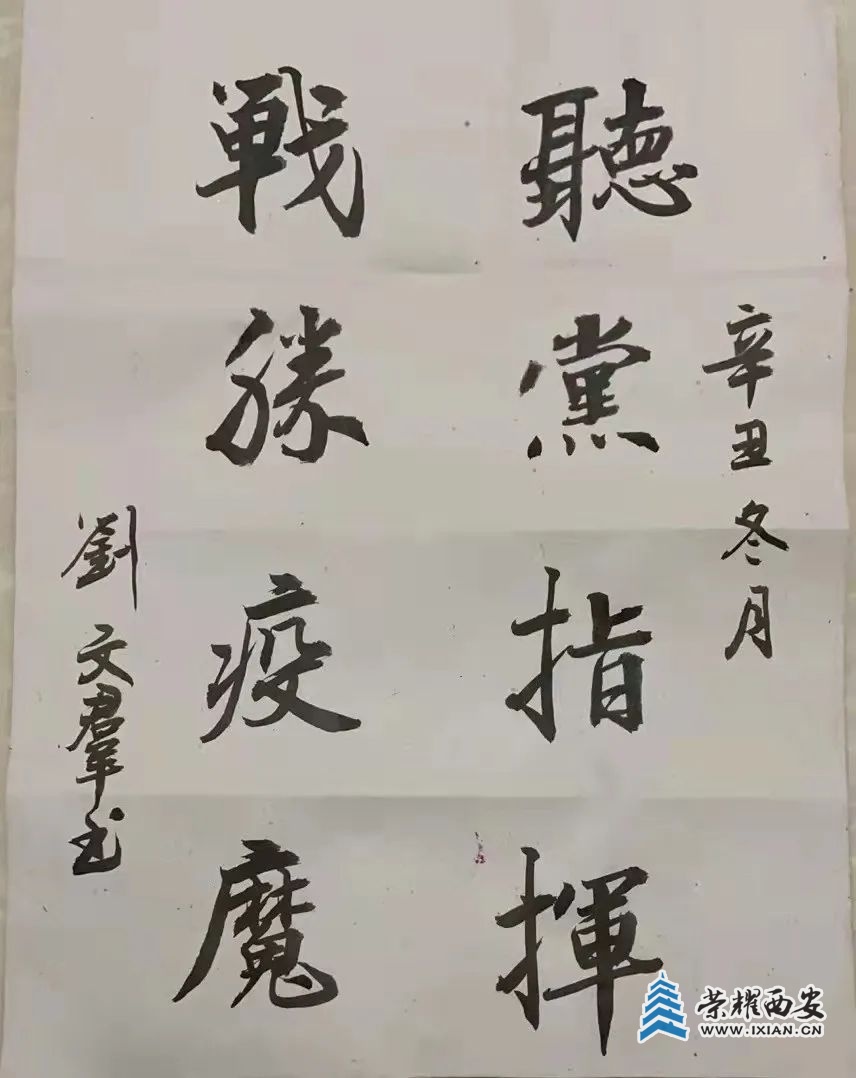 聽黨指揮
戰勝疫魔
辛丑冬月
劉文羣书
荣耀西安
WWW.IXIAN.CN